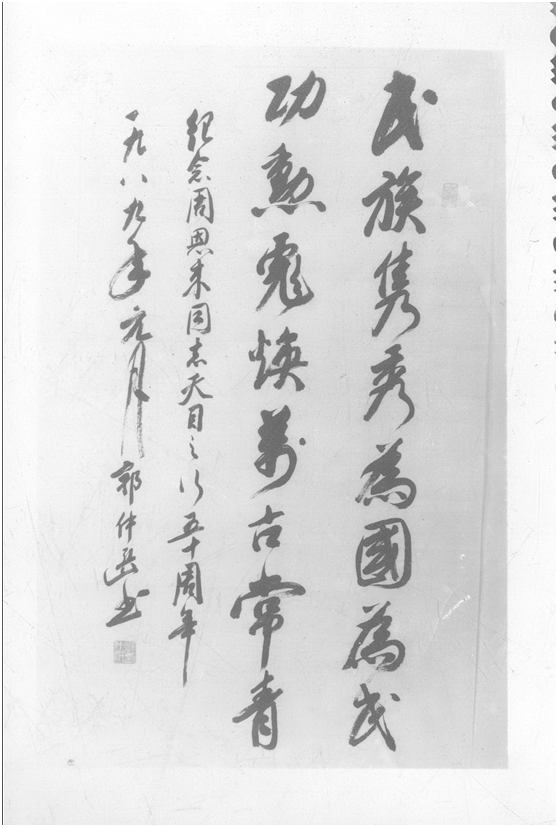 民族隽秀為國為民
功勲彪焕萬古常青
纪念周恩来同志天目之行五十周年
一九八九年元月 郭仲岳书